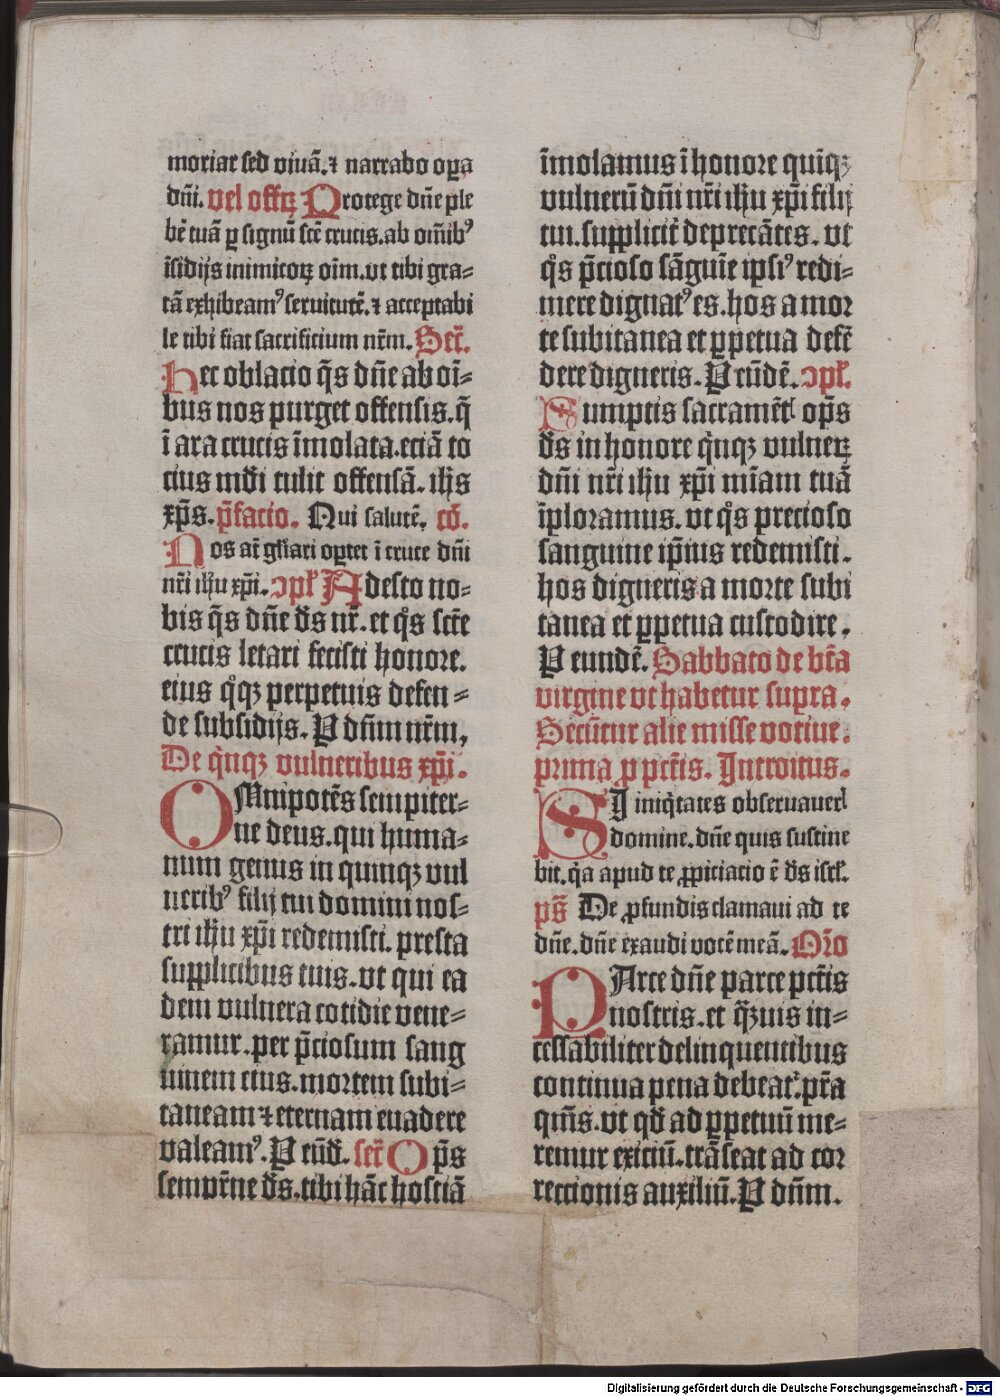 moriar sed viuā. ⁊ narrabo oꝑa
dn̄i. vel offꝝ Protege dn̄e ple
bē tuā ꝑ signū sctē crucis. ab om̄ibꝰ
īsidijs inimicoꝝ oīm. vt tibi gra⸗
tā exhibeamꝰ seruitutē. ⁊ acceptabi
le tibi fiat sacrificium nr̄m. Secr̄.
Hec oblacio q̄s dn̄e ab oī⸗
bus nos purget offensis. q̄
ī ara crucis īmolata. eciā to
cius mūdi tulit offensā. ih̄s
xp̄s. p̄facio. Qui salutē. cō.
Nos aūt gl̄iari oꝑtet ī cruce dn̄i
nr̄i ih̄u xp̄i. ↄpl̄ Adesto no⸗
bis q̄s dn̄e d̄s nr̄. et qͦs sctē
crucis letari fecisti honore.
eius qͦꝫ perpetuis defen⸗
de subsidijs. P dn̄m nr̄m.
De qͥnqꝫ vulneribus xp̄i.
OMnipotēs sempiter⸗
ne deus. qui huma⸗
num genus in quinqꝫ vul
neribꝰ filij tui domini nos⸗
tri ih̄u xp̄i redemisti. presta
supplicibus tuis. vt qui ea
dem vulnera cotidie vene⸗
ramur. per p̄ciosum sang
uinem eius. mortem subi⸗
taneam ⁊ eternam euadere
valeamꝰ. P eūd̄. secr̄ Op̄s
sempr̄ne d̄s. tibi hāc hostiā
īmolamus ī honore quīqꝫ
vulnerū dn̄i nr̄i ih̄u xp̄i filij
tui. supplicit̄ deprecātes. vt
qͦs p̄cioso sāguīe ipsiꝰ redi⸗
mere dignatꝰ es. hos a mor
te subitanea et ꝑpetua defē
dere digneris. P eūdē. ↄpl̄.
Sumptis sacramēt̄ op̄s
d̄s in honore qͥnqꝫ vulneꝝ
dn̄i nr̄i ih̄u xp̄i mīam tuā
īploramus. vt qͦs precioso
sanguine ip̄ius redemisti.
hos digneris a morte subi
tanea et ꝑpetua custodire.
P eundē. Sabbato de btā
virgine vt habetur supra.
Secūtur alie misse votiue.
prima ꝓ pctīs. Introitus.
SI iniqͥtates obseruauer̄
domine. dn̄e quis sustine
bit. qͥa apud te ꝓpiciacio ē d̄s isrl̄.
ps̄ De ꝓfundis clamaui ad te
dn̄e. dn̄e exaudi vocē meā. Or̄o
PArce dn̄e parce pctīs
nostris. et qͣꝫuis in⸗
cessabiliter delinquentibus
continua pena debeat̄. pr̄a
qm̄s. vt qd̄ ad ꝑpetuū me⸗
remur exiciū. trāseat ad cor
rectionis auxiliū. P dn̄m.
Digitalisierung gefördert durch die Deutsche Forschungsgemeinschaft - DFG